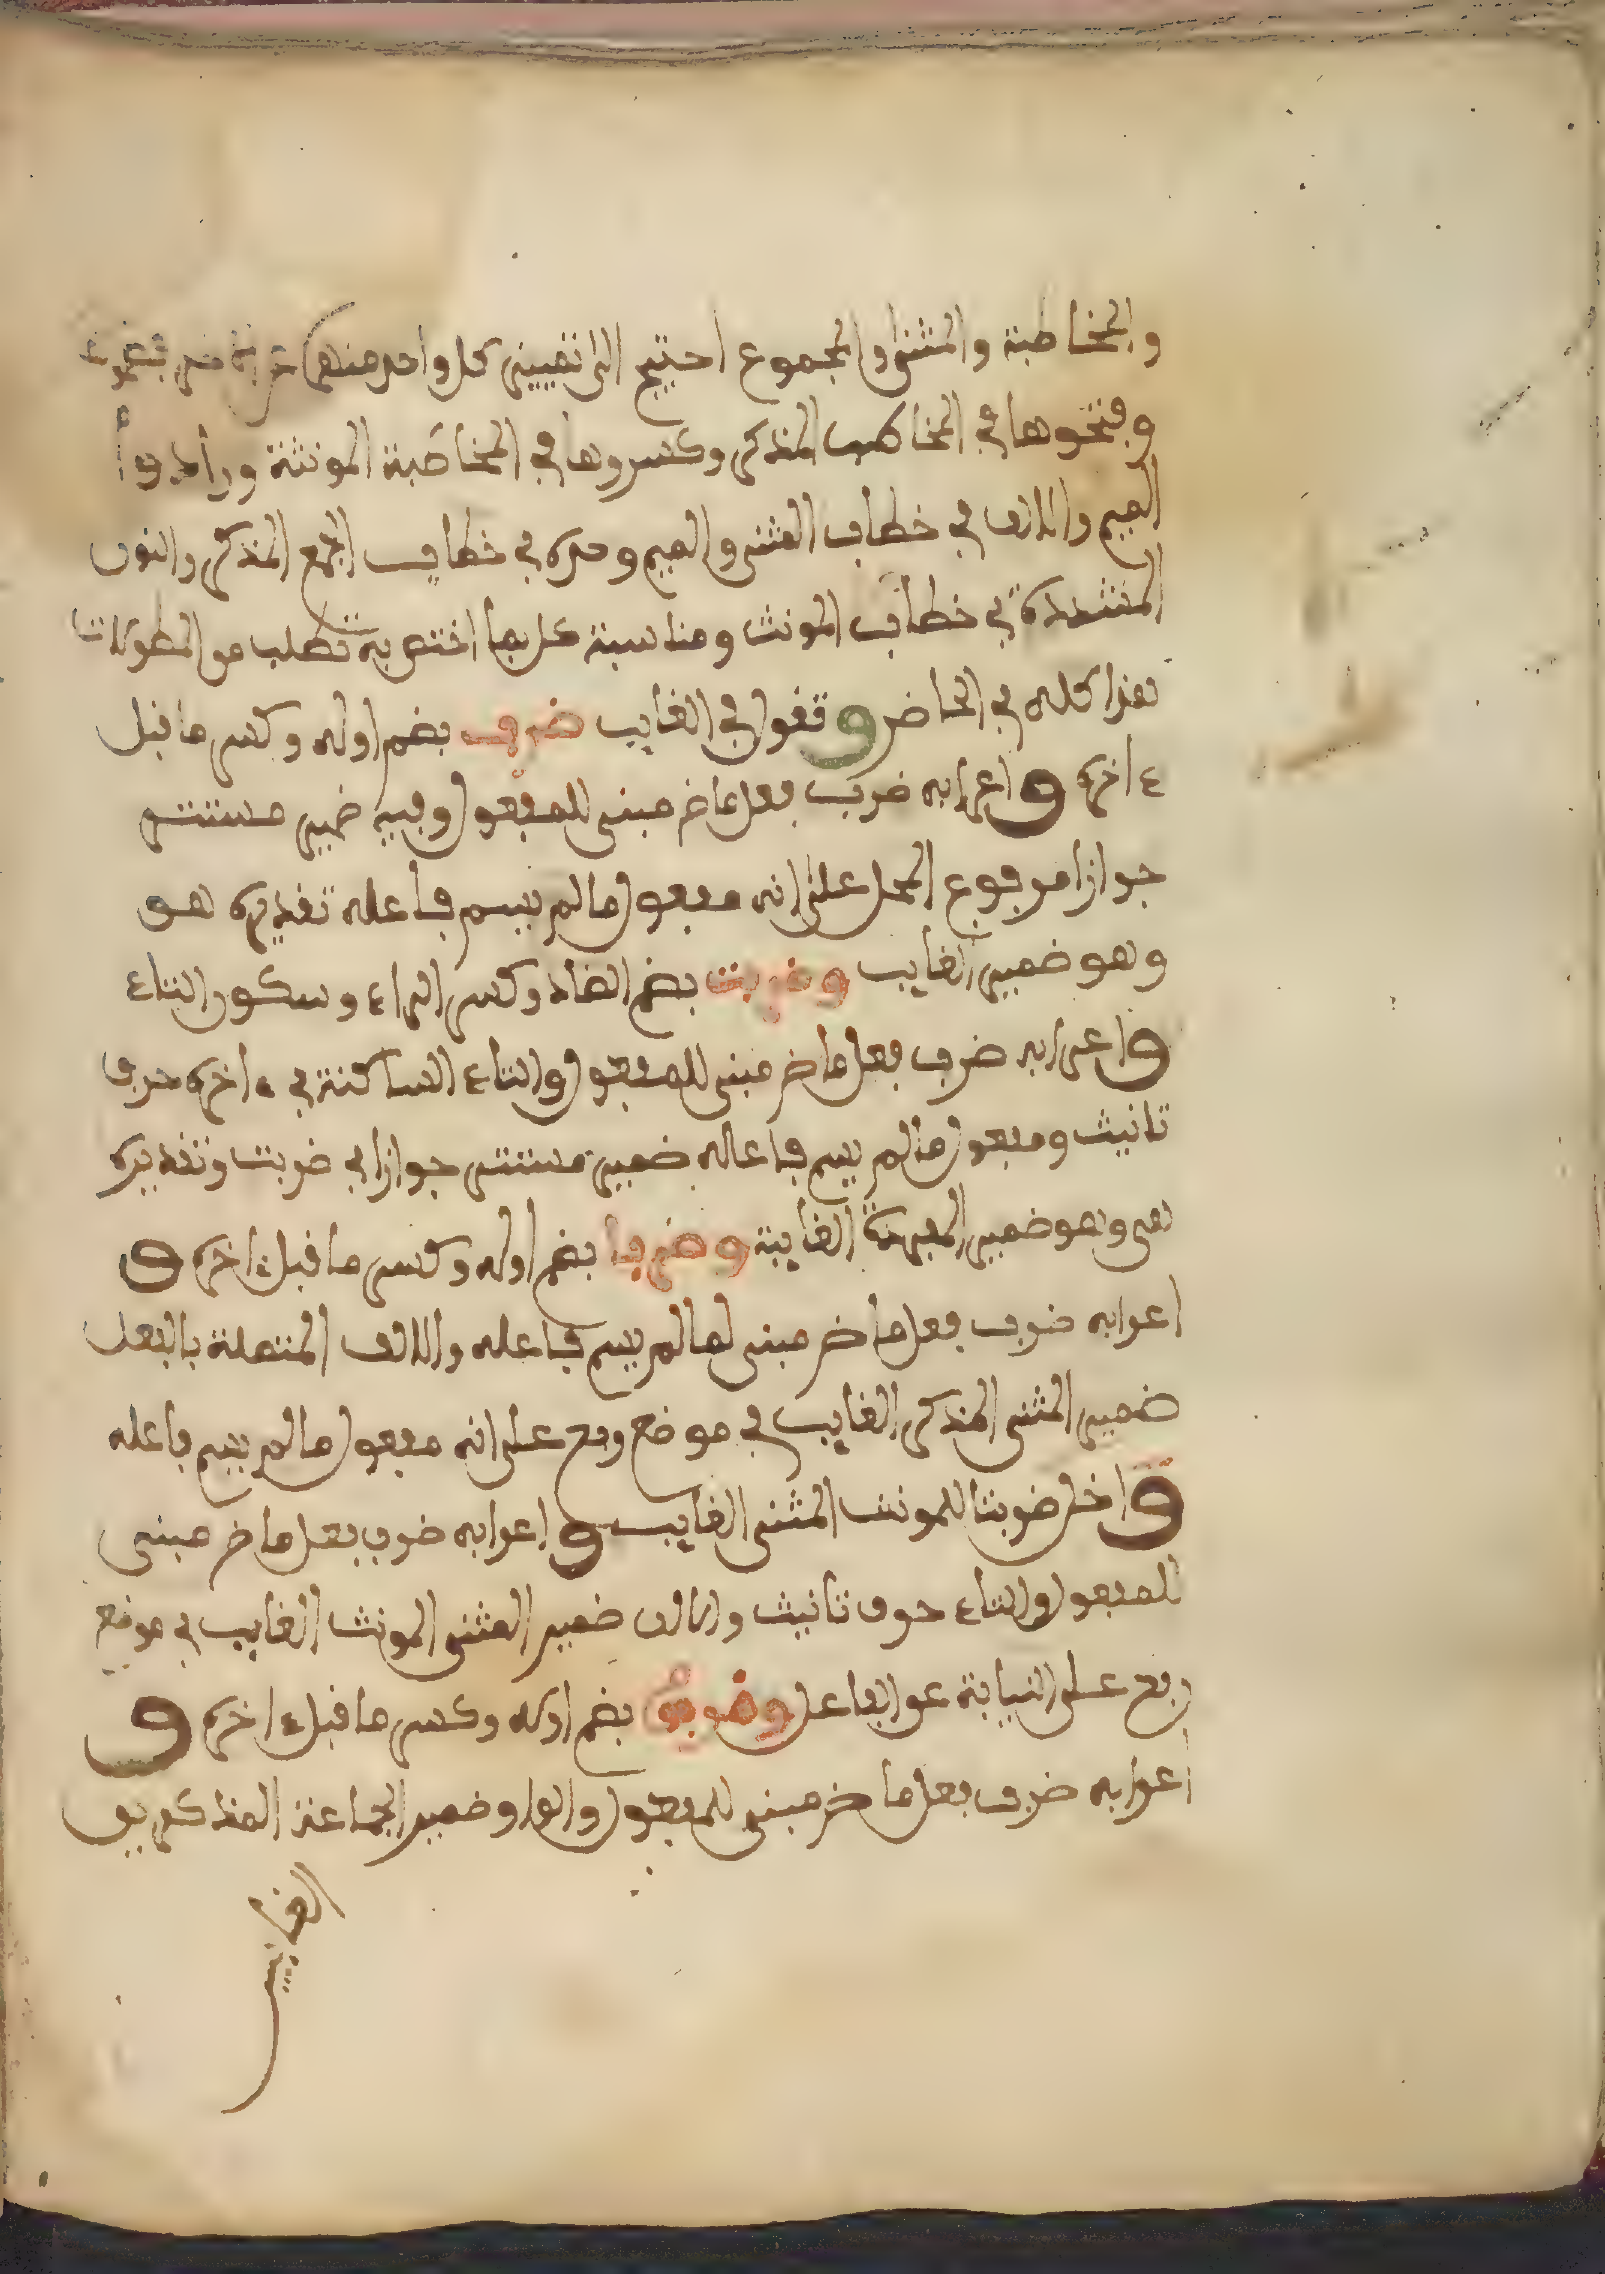 والمخاطبة والمثنى والمجموع احتيج الى تمييز كل واحد منهما
وفتحوها في المخاطب المذكر وكسروها في المخاطبة المونثة وزادوا
الميم والالف في خطاب المثنى والميم وحده في خطاب الجمع المذكر والنون
المشددة في خطاب المونث ومناسبة كل بما اختص به تطلب من المطولات
هذا كله في الحاضر وتقول في الغايب ضرب بضم اوله وكسر ما قبل
ءاخره واعرابه ضرب فعل ماض مبنى للمفعول وفيه ضمير مستتر
جوازا مرفوع المحل على انه مفعول ما لم يسم فاعله تقديره هو
وهو ضمير الغايب وضربت بضم الضاد وكسر الراء وسكون التاء
واعرابه ضرب فعل ماض مبنى للمفعول والتاء الساكنة في ءاخره حرف
تانيث ومفعول ما لم يسم فاعله ضمير مستتر جوازا في ضربت وتقديره
هى وهو ضمير المفردة الغايبة وضربا بضم اوله وكسر ما قبل ءاخره و
اعرابه ضرب فعل ماض مبنى لما لم يسم فاعله والالف المتصلة بالفعل
ضمير المثنى المذكر الغايب في موضع رفع على انه مفعول ما لم يسم فاعله
واخل ضربتا للمونث المثنى الغايب واعرابه ضرب فعل ماض مبنى
للمفعول والتاء حرف تانيث والالف ضمير المثنى المونث الغايب في موضع
رفع على النيابة عن الفاعل وضربوا بضم اوله وكسر ما قبل ءاخره و
اعرابه ضرب فعل ماض مبنى للمفعول والواو ضمير الجماعة المذكرين
الغايبين